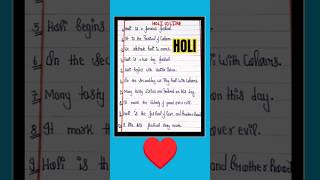 HOLI 10 LINE
1. Holi is a famous festival.
2. It is the festival of Colours.
3. We celebrate Holi in March.
4. Holi is a two day festival.
5. Holi begins with Holika Dahan.
6. On the Second day we Play Holi with Colours.
7. Many tasty dishes are Prepared on this day.
8. It mark the victory of good over evil.
9. Holi is the festival of love and
10. I like this festival very much.
HOLI
5. Holi begins
6. On the
with Colours.
7. Many tasty
on this day.
8. It mark th
over evil.
9. Holi is the